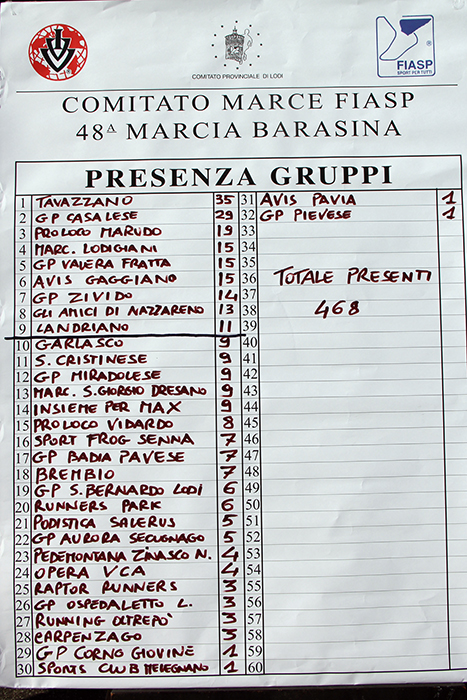 IVV
COMITATO PROVINCIALE DI LODI
FIASP
SPORT PER TUTTI
COMITATO MARCE FIASP
48ª MARCIA BARASINA
PRESENZA GRUPPI
1 TAVAZZANO 35
2 GP CASALESE 29
3 PROLOCO MARUDO 19
4 MARC. LODIGIANI 15
5 GP VALERA FRATTA 15
6 AVIS GAGGIANO 15
7 GP ZIVIDO 14
8 GLI AMICI DI NAZZARENO 13
9 LANDRIANO 11
10 GARLASCO 9
11 S. CRISTINESE 9
12 GP MIRADOLESE 9
13 MARC. S. GIORGIO DRESANO 9
14 INSIEME PER MAX 9
15 PROLOCO VIDARDO 8
16 SPORT FROG SENNA 7
17 GP BADIA PAVESE 7
18 BREMBIO 7
19 GP S. BERNARDO LODI 6
20 RUNNERS PARK 6
21 PODISTICA SALERUS 5
22 GP AURORA SECUGNAGO 5
23 PEDEMONTANA ZINASCO N. 4
24 OPERA VCA 4
25 RAPTOR RUNNERS 3
26 GP OSPEDALETTO L. 3
27 RUNNING OLTREPO' 3
28 CARPENZAGO 3
29 GP CORNO GIOVINE 1
30 SPORTS CLUB MELEGNANO 1
31 AVIS PAVIA 1
32 GP PIEVESE 1
33
34
35
36 TOTALE PRESENTI
37
38 468
39
40
41
42
43
44
45
46
47
48
49
50
51
52
53
54
55
56
57
58
59
60